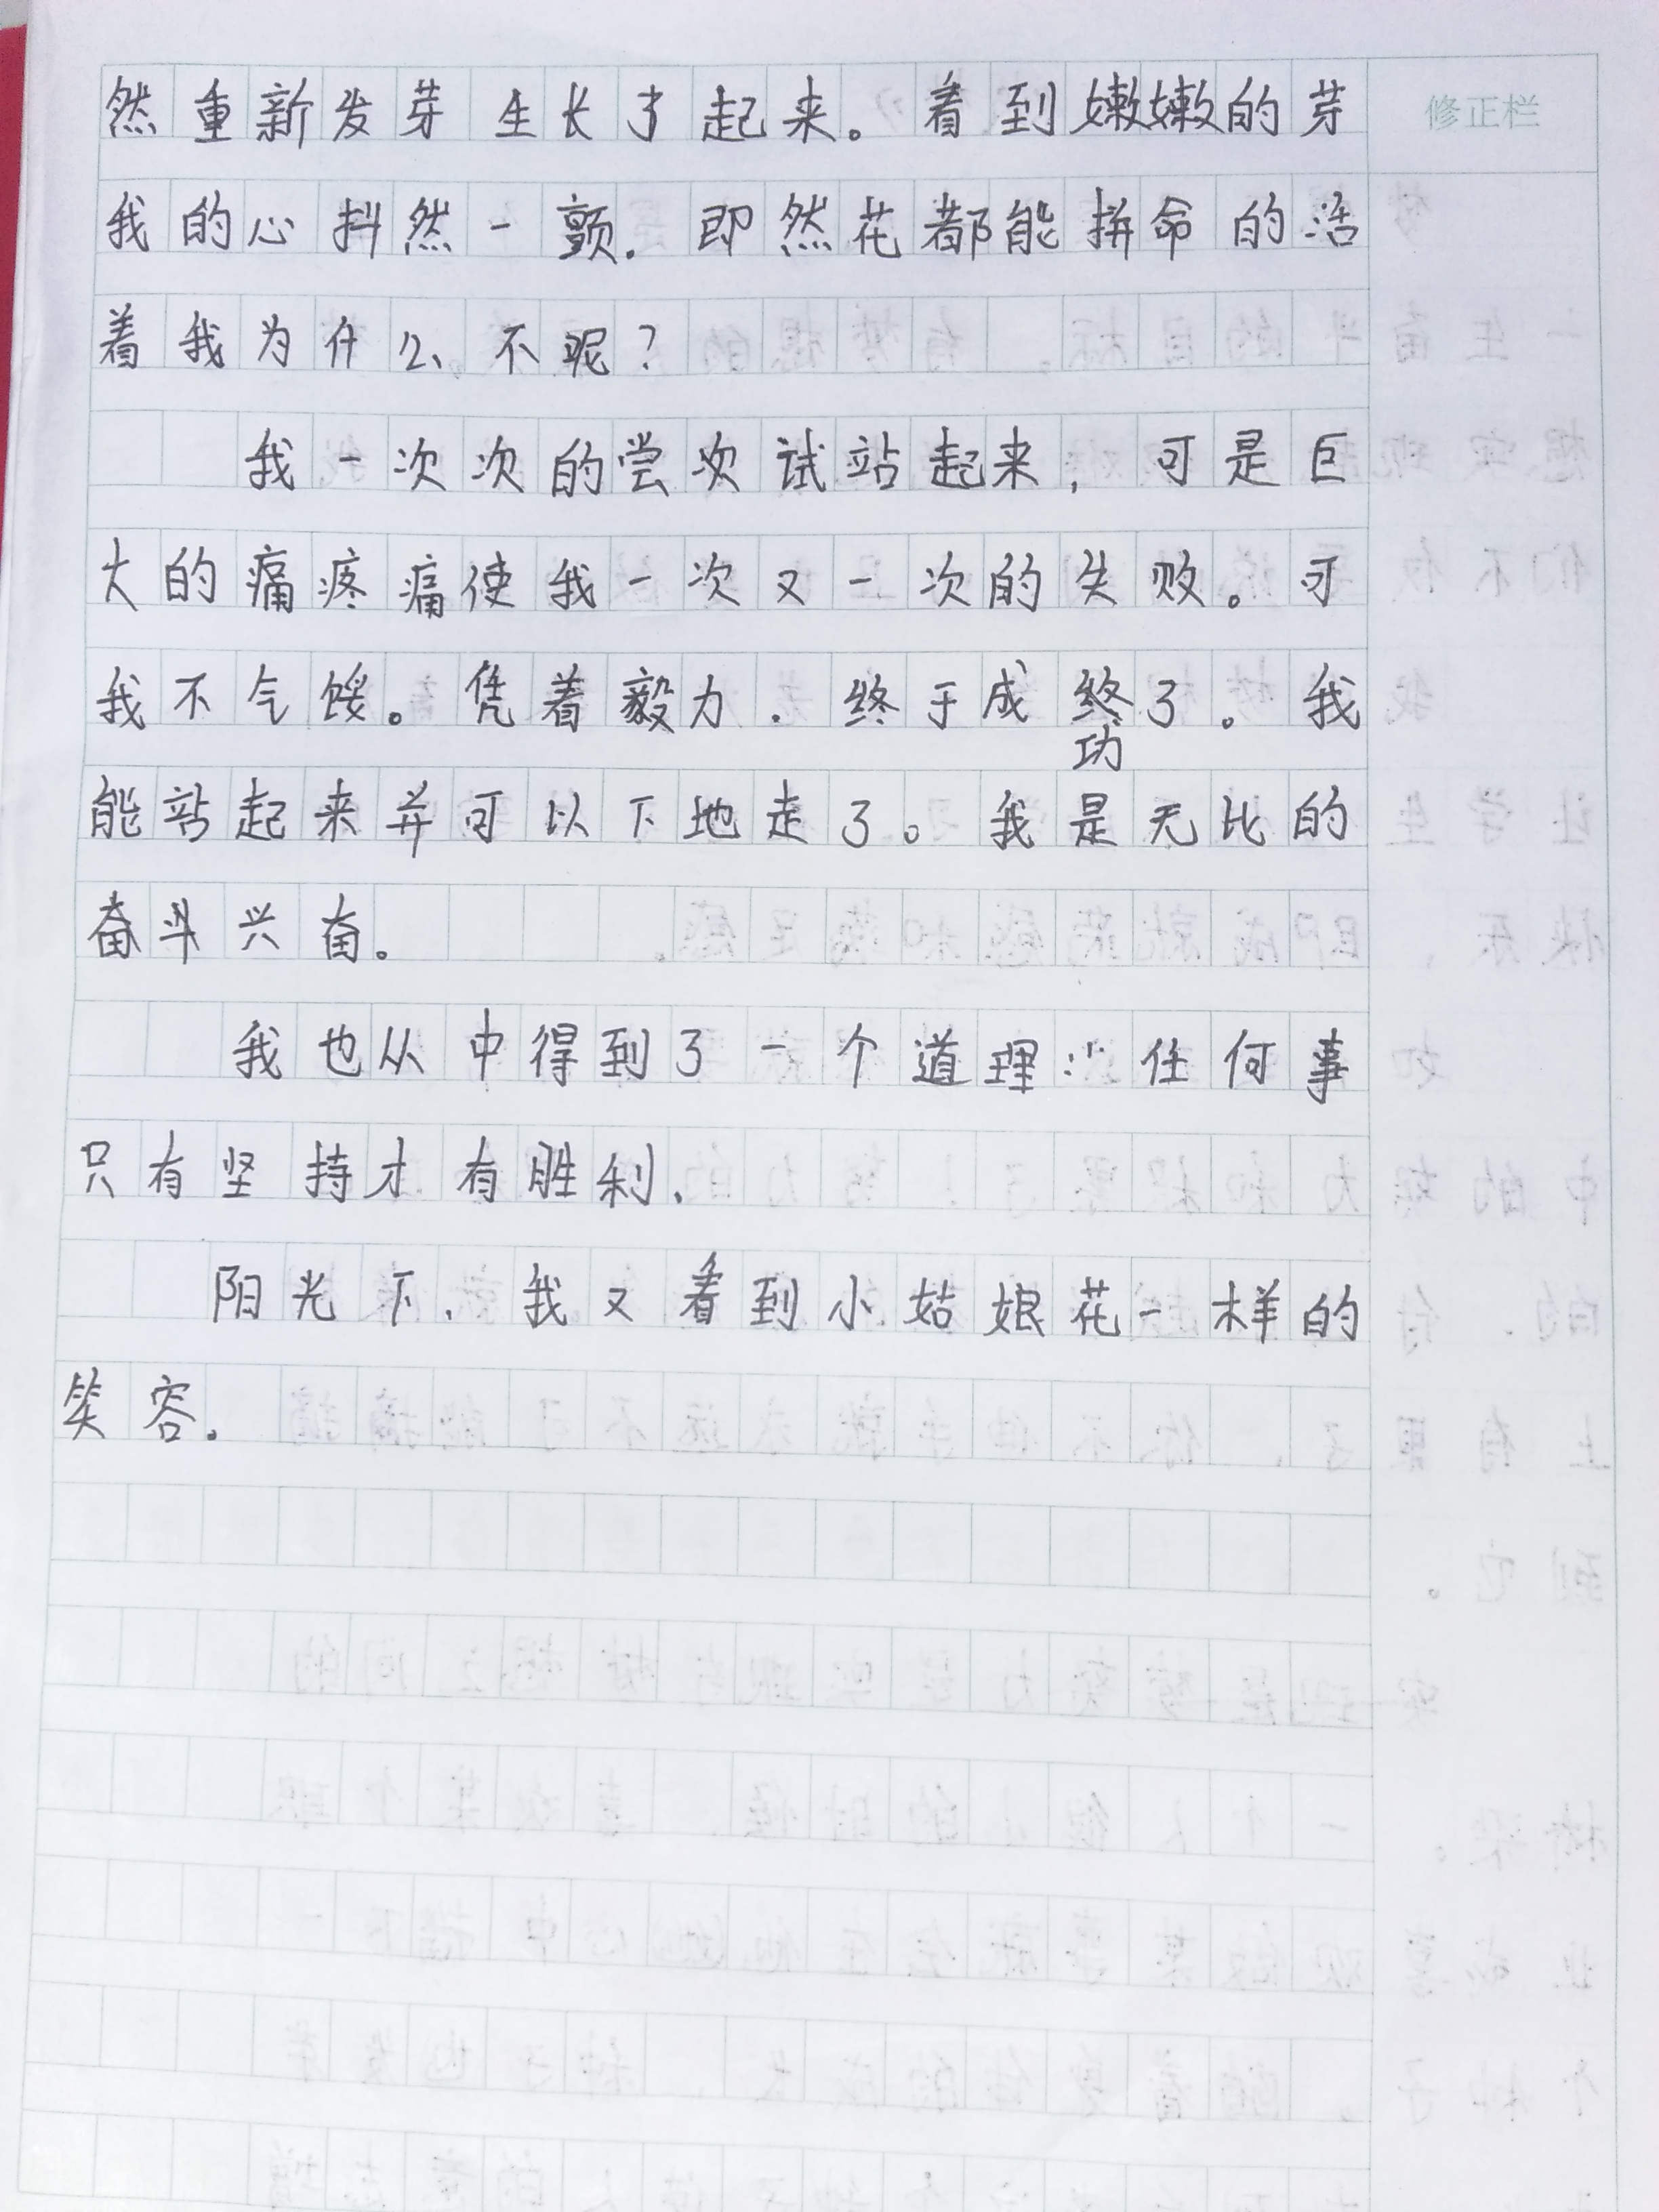 然重新发芽生长了起来。看到嫩嫩的芽
修正栏
我的心抖然一颤.即然花都能拼命的活
着我为什么不呢?
我一次次的尝次试站起来,可是巨
大的痛疼痛使我一次又一次的失败。可
我不气馁。凭着毅力.终于成终了。我
功
能站起来并可以下地走了。我是无比的
奋斗兴奋。
我也从中得到了一个道理:任何事
只有坚持才有胜利.
阳光下.我又看到小姑娘花一样的
笑容.